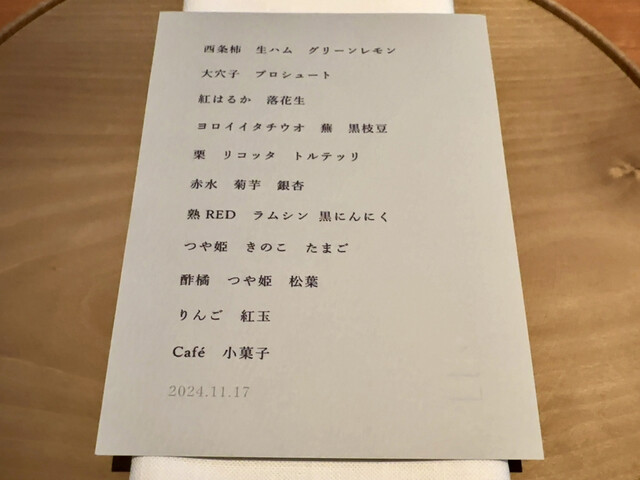 西条柿　生ハム　グリーンレモン
大穴子　プロシュート
紅はるか　落花生
ヨロイイタチウオ　蕪　黒枝豆
栗　リコッタ　トルテッリ
赤水　菊芋　銀杏
熟RED　ラムシン　黒にんにく
つや姫　きのこ　たまご
酢橘　つや姫　松葉
りんご　紅玉
Café　小菓子
2024.11.17